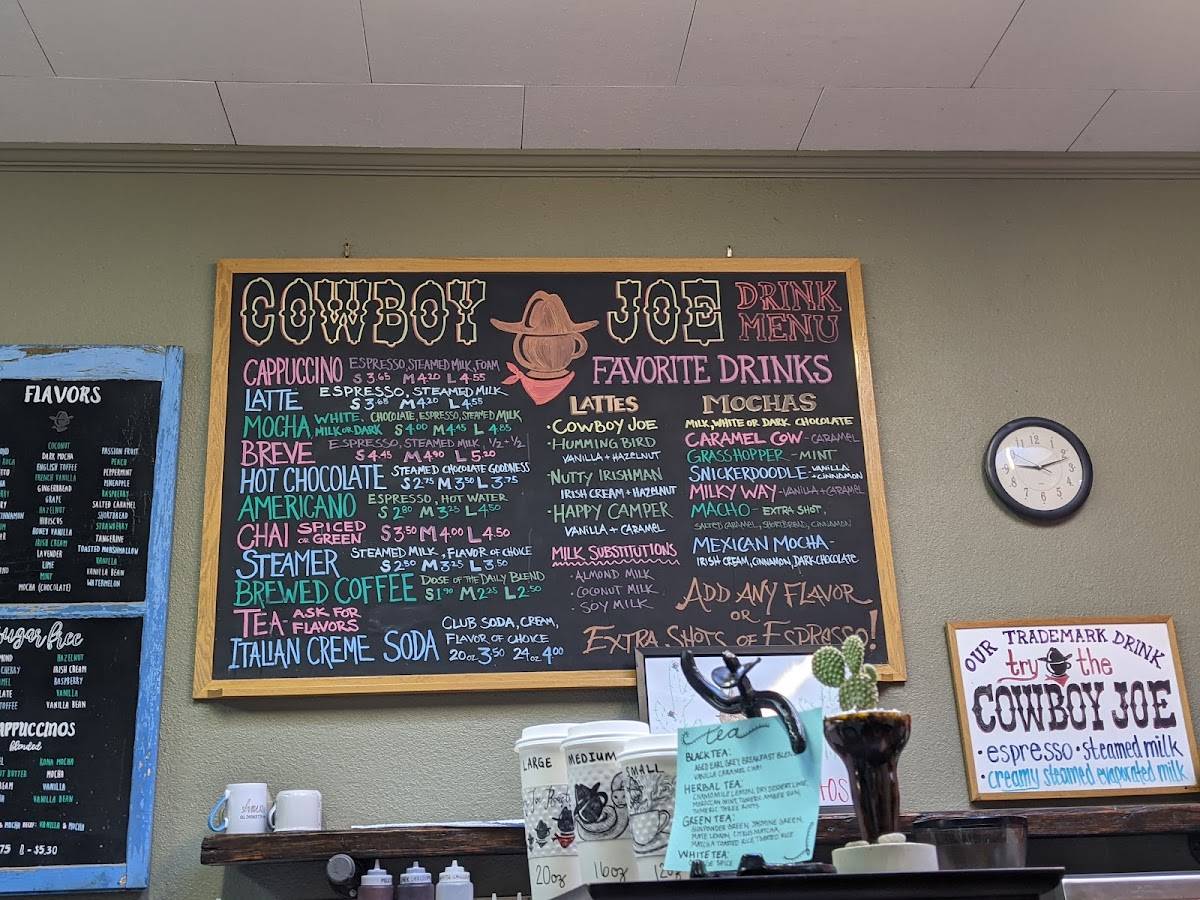 FLAVORS
COCONUT
DARK MOCHA
ENGLISH TOFFEE
FRENCH VANILLA
GINGERBREAD
GRAPE
HAZELNUT
HIBISCUS
HONEY VANILLA
IRISH CREAM
LAVENDER
LIME
MINT
MOCHA (CHOCOLATE)
PASSION FRUIT
PEACH
PEPPERMINT
PINEAPPLE
RASPBERRY
SALTED CARAMEL
SHORTBREAD
STRAWBERRY
TANGERINE
TOASTED MARSHMALLOW
VANILLA
VANILLA BEAN
WATERMELON
sugar free
HAZELNUT
CHERRY IRISH CREAM
RASPBERRY
VANILLA
VANILLA BEAN
blended
KONA MOCHA
MOCHA
VANILLA
VANILLA BEAN
$5.30
COWBOY JOE DRINK MENU
CAPPUCCINO ESPRESSO, STEAMED MILK, FOAM
S 3.65 M 4.20 L 4.55
LATTE ESPRESSO, STEAMED MILK
S 3.65 M 4.20 L 4.55
MOCHA WHITE, CHOCOLATE, ESPRESSO, STEAMED MILK
MILK OR DARK S 4.00 M 4.45 L 4.85
BREVE ESPRESSO, STEAMED MILK, 1/2 + 1/2
S 4.45 M 4.90 L 5.20
HOT CHOCOLATE STEAMED CHOCOLATE GOODNESS
S 2.75 M 3.50 L 3.75
AMERICANO ESPRESSO, HOT WATER
S 2.80 M 3.25 L 4.50
CHAI SPICED OR GREEN S 3.50 M 4.00 L 4.50
STEAMER STEAMED MILK, FLAVOR OF CHOICE
S 2.50 M 3.25 L 3.50
BREWED COFFEE DOSE OF THE DAILY BLEND
S 1.90 M 2.25 L 2.50
TEA - ASK FOR FLAVORS
ITALIAN CREME SODA CLUB SODA, CREAM,
FLAVOR OF CHOICE
20oz 3.50 24oz 4.00
FAVORITE DRINKS
LATTES
• COWBOY JOE
• HUMMING BIRD
VANILLA + HAZELNUT
• NUTTY IRISHMAN
IRISH CREAM + HAZELNUT
• HAPPY CAMPER
VANILLA + CARAMEL
MILK SUBSTITUTIONS
• ALMOND MILK
• COCONUT MILK
• SOY MILK
MOCHAS
MILK, WHITE OR DARK CHOCOLATE
CARAMEL COW - CARAMEL
GRASSHOPPER - MINT
SNICKERDOODLE - VANILLA + CINNAMON
MILKY WAY - VANILLA + CARAMEL
MACHO - EXTRA SHOT,
SALTED CARAMEL, SHORTBREAD, CINNAMON
MEXICAN MOCHA -
IRISH CREAM, CINNAMON, DARK CHOCOLATE
ADD ANY FLAVOR
OR
EXTRA SHOTS OF ESPRESSO!
12
1
2
3
4
5
6
7
8
9
10
11
OUR TRADEMARK DRINK
try the
COWBOY JOE
• espresso • steamed milk
• creamy steamed evaporated milk
LARGE
20oz
MEDIUM
16oz
SMALL
tea
BLACK TEA:
AGED EARL GREY, BREAKFAST BLEND,
VANILLA CARAMEL CHAI
HERBAL TEA:
GREEN TEA:
GUNPOWDER GREEN, JASMINE GREEN,
MATE LEMON, CITRUS MATCHA,
WHITE TEA:
SPICE